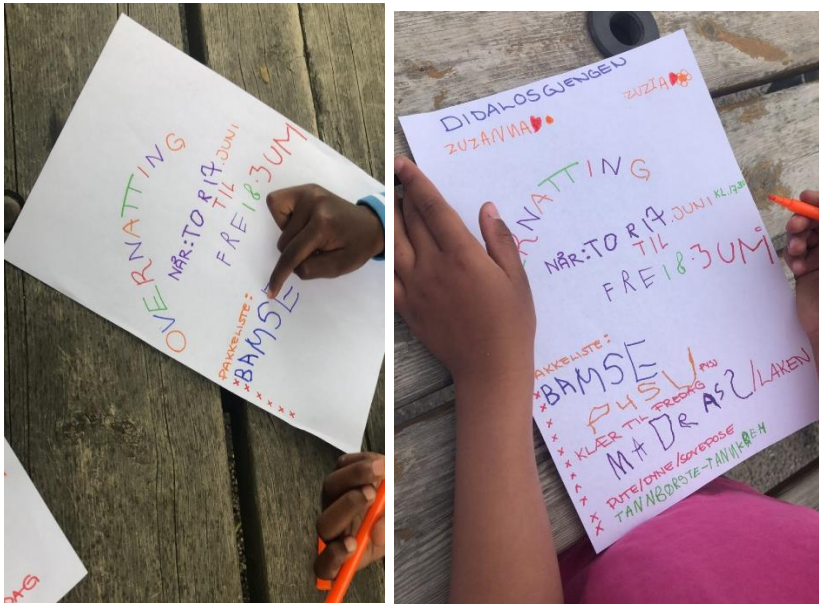 OVERNATTING
NÅR:TO R 17.JUNI
TIL
FRE 18.JUM
PAKKELISTE:
x BAMSE
x
x
x
x
x
DAG
DIDALOSGJENGEN
ZUZANNA
ZUZIA
RNATTING
NÅR:TO R 17.JUNI KL.1730
TIL
FRE 18.JUMi
PAKKELISTE:
x BAMSE
x PYSJ
x KLÆR TIL FREDAG
x MADRAS/LAKEN
x PUTE/DYNE/SOVEPOSE
x TANNBØRSTE-TANNKREM